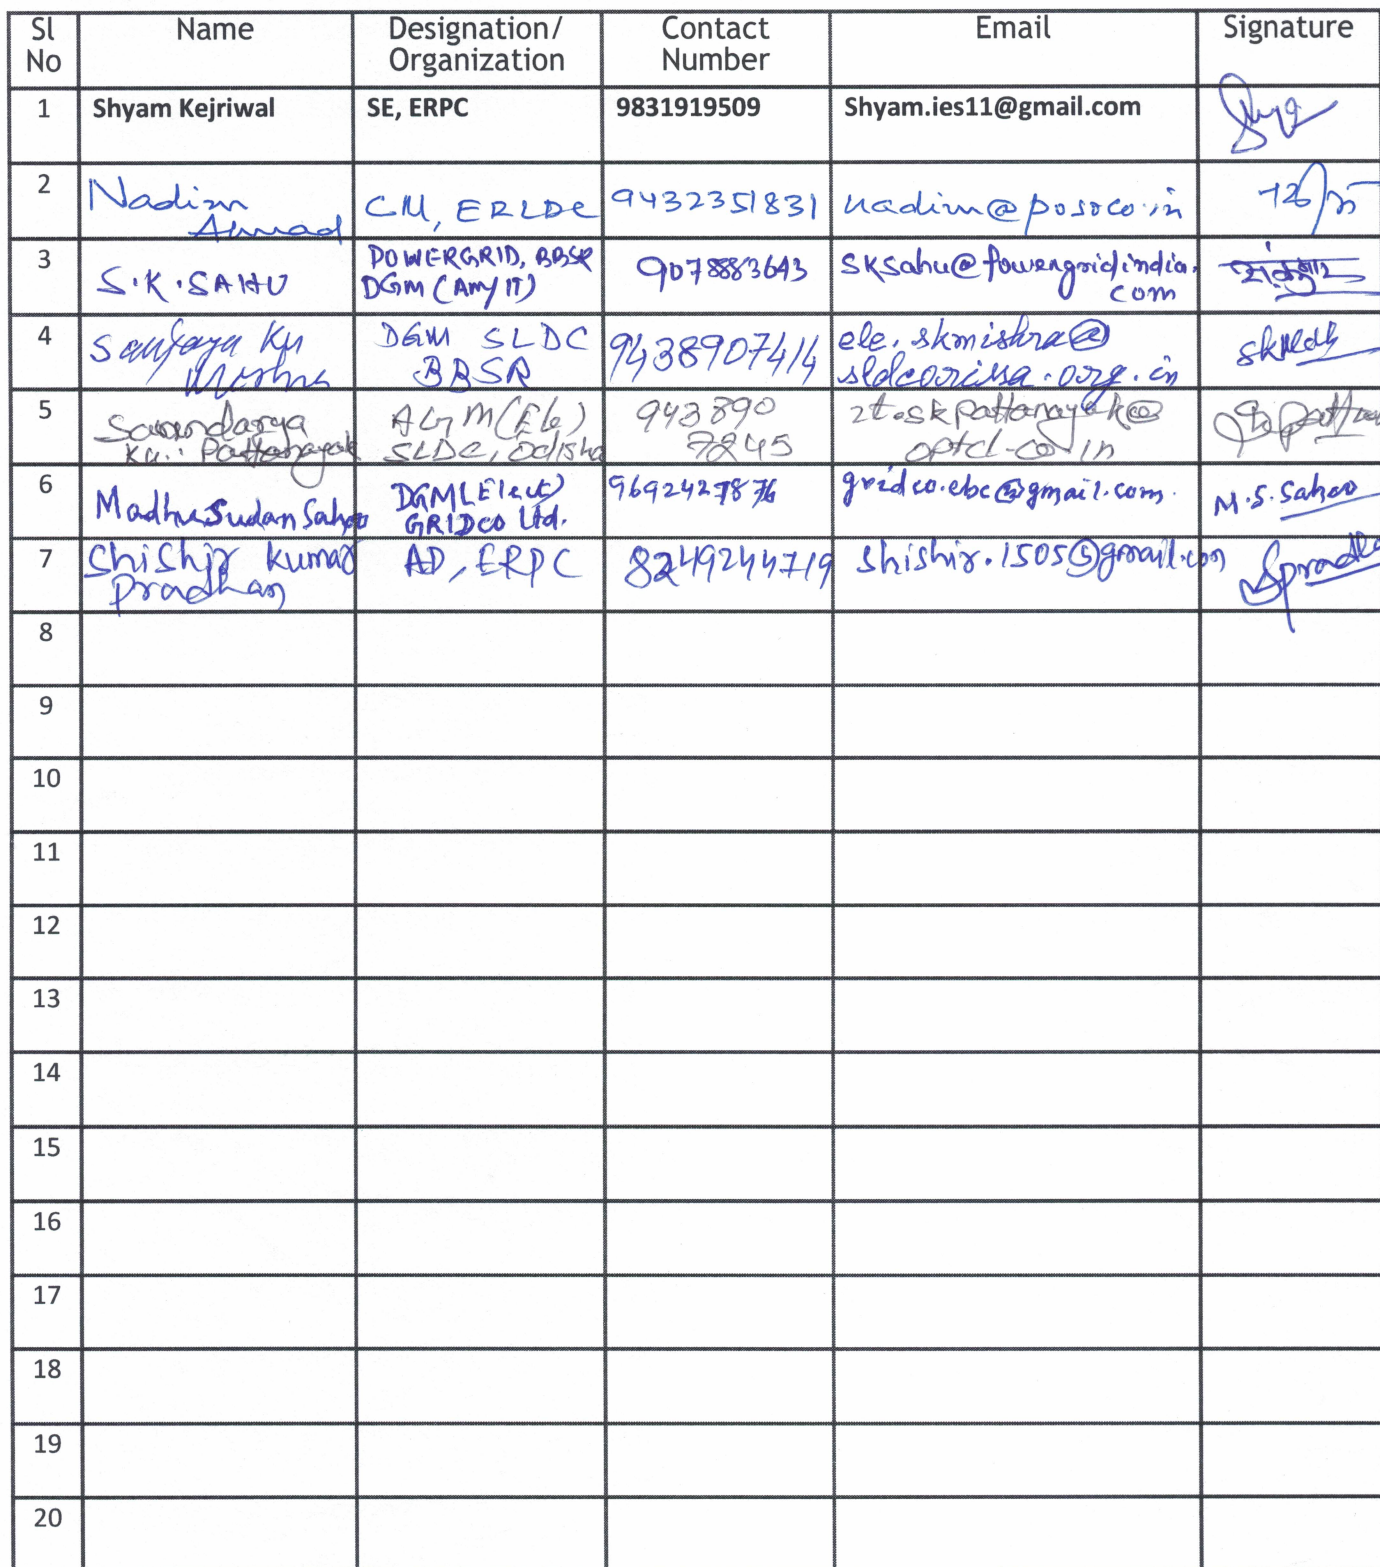 Sl No Name Designation/ Organization Contact Number Email Signature
1 Shyam Kejriwal SE, ERPC 9831919509 Shyam.ies11@gmail.com
2 Nadim Ahmad CM, ERLDC 9432351831 nadim@posoco.in
3 S.K.SAHU POWERGRID, BBSR DGM (AM/IT) 9078883643 sksahu@powergridindia.com
4 Sanjaya Ku Mishra DGM SLDC BBSR 9438907414 ele.skmishra@sldcorissa.org.in
5 Ku. Pattanayak AGM(Ele) SLDC, Odisha 943890 7245 skpattanayak@optcl.co.in
6 Madhu Sudan Sahoo DGM(Elect) GRIDCO Ltd. 9692427876 gridco.ebc@gmail.com M.S. Sahoo
7 Shishir Kumar Pradhan AD, ERPC 8249244719 shishir.1505@gmail.com Spradha
8
9
10
11
12
13
14
15
16
17
18
19
20